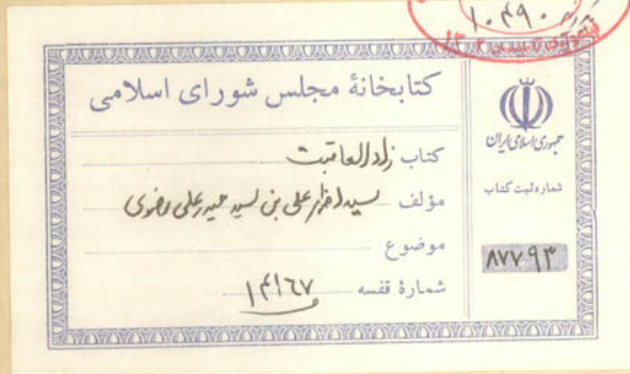 ۱۰۴۹۰
کتابخانهٔ مجلس شورای اسلامی
کتاب زاد العاقبت
مؤلف سید علی بن سید حیدر علی رضوی
موضوع
شمارهٔ قفسه ۱۴۱۶۷
جمهوری اسلامی ایران
شماره ثبت کتاب
۸۷۷۹۳